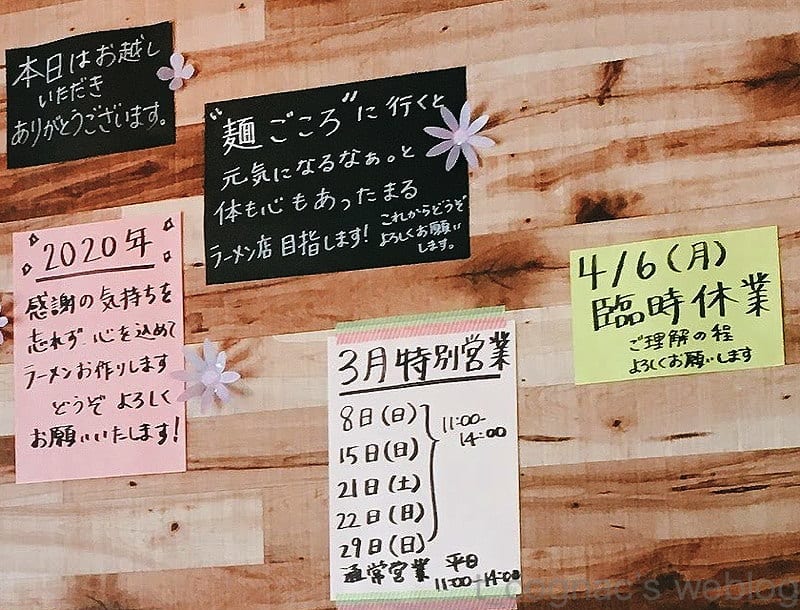 本日はお越し
いただき
ありがとうございます。
“麺ごころ”に行くと
元気になるなぁ。と
体も心もあったまる
ラーメン店目指します!
これからどうぞ
よろしくお願い
します。
2020年
感謝の気持ちを
忘れず 心を込めて
ラーメンお作りします
どうぞ よろしく
お願いいたします!
3月特別営業
8日(日)
15日(日)
21日(土)
22日(日)
29日(日)
11:00-
14:00
通常営業 平日
11:00-14:00
4/6(月)
臨時休業
ご理解の程
よろしくお願いします
's weblog